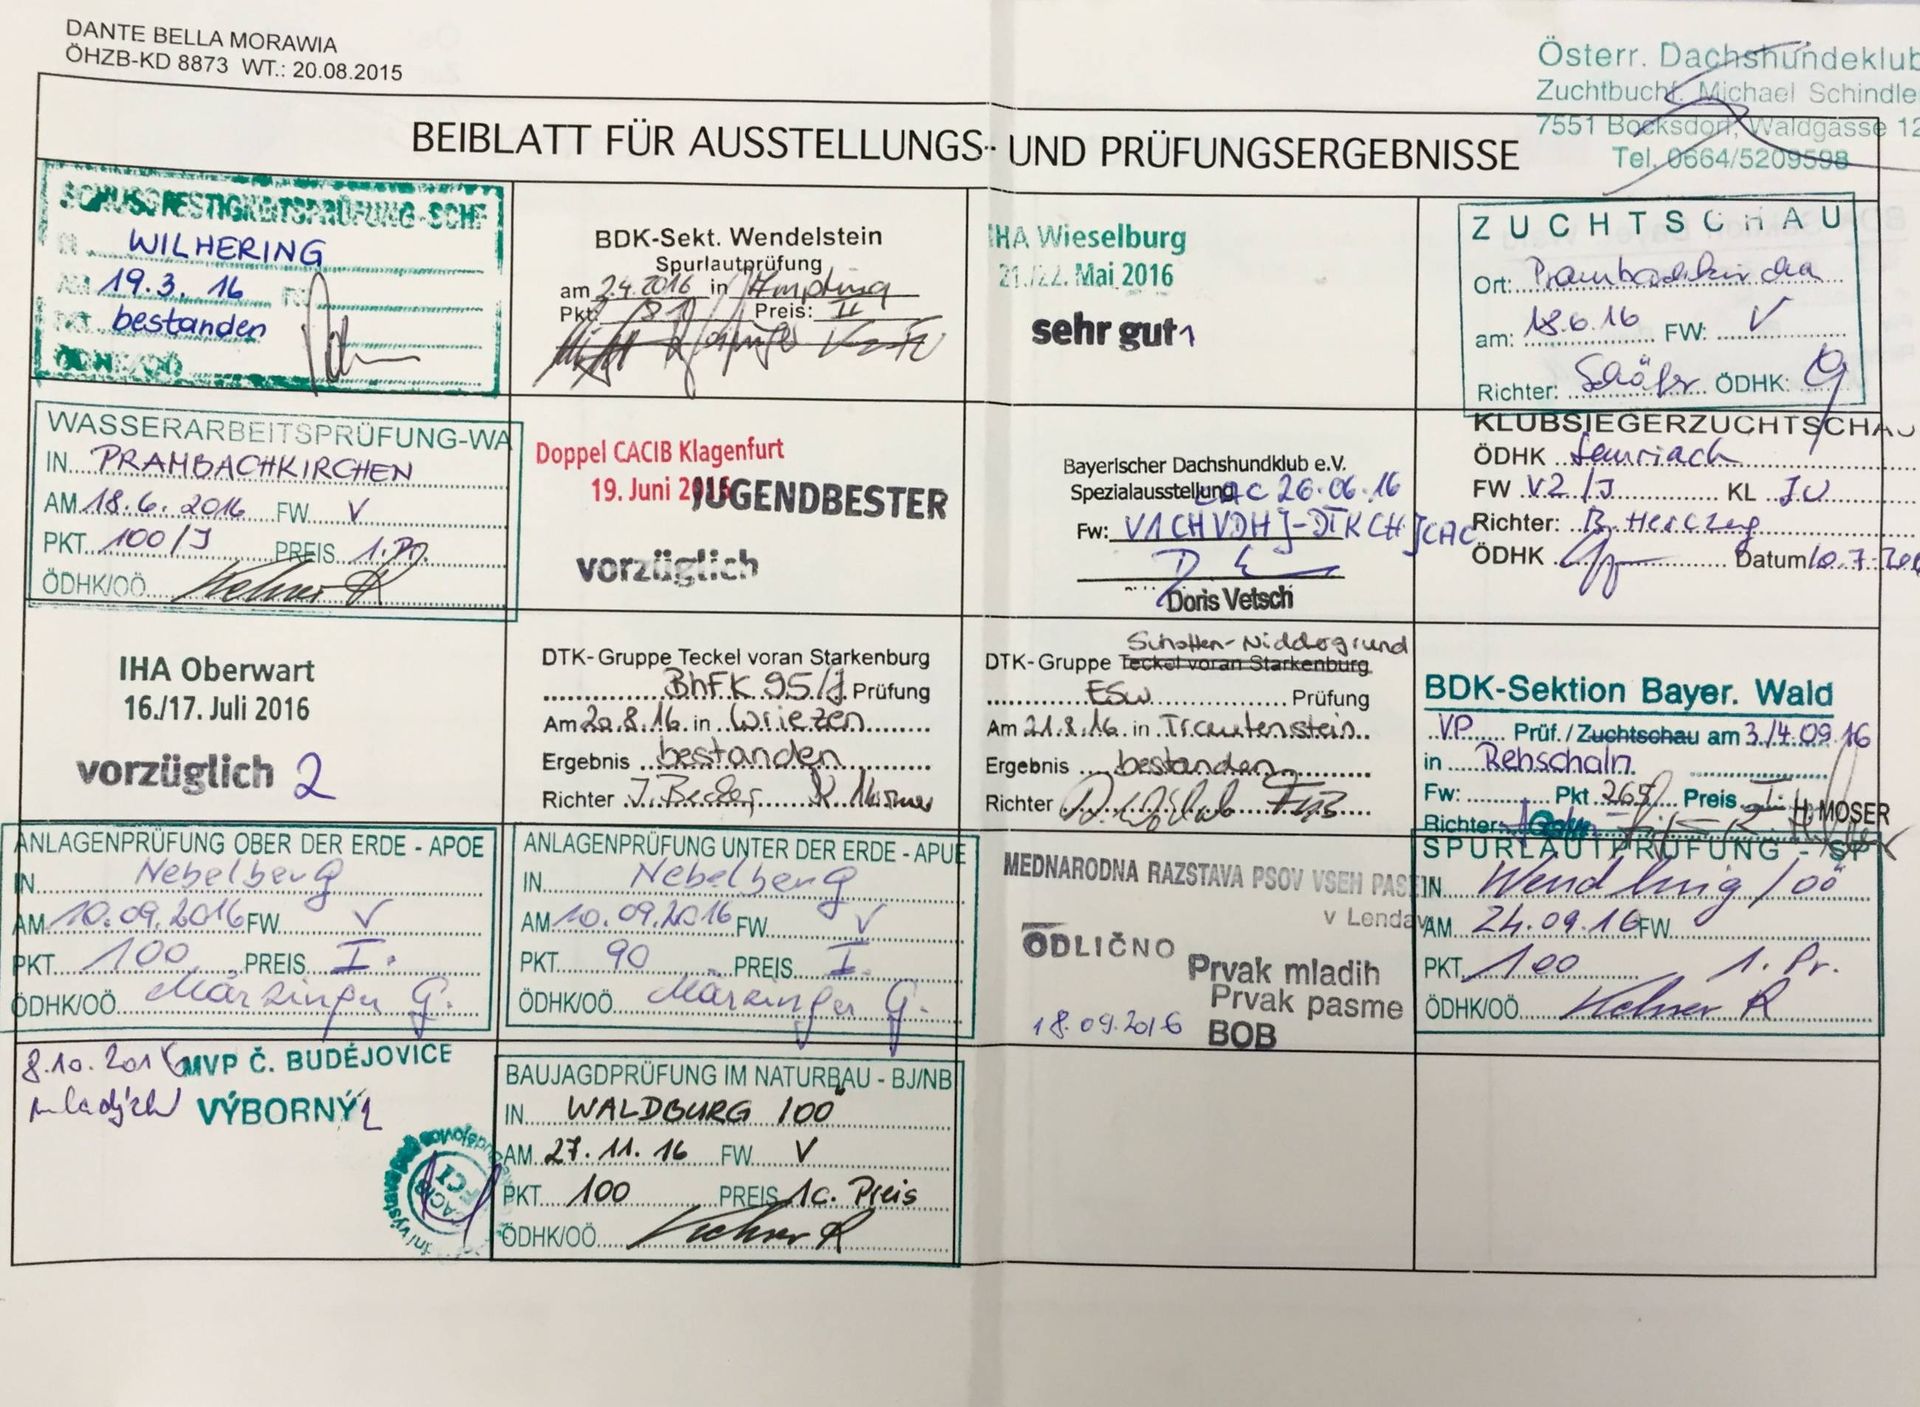 DANTE BELLA MORAWIA
ÖHZB-KD 8873 WT.: 20.08.2015
Österr. Dachshundeklub
Zuchtbuchf. Michael Schindle
7551 Bocksdorf, Waldgasse 12
Tel. 0664/5209598
BEIBLATT FÜR AUSSTELLUNGS- UND PRÜFUNGSERGEBNISSE
SCHUSSFESTIGKEITSPRÜFUNG-SCHF
IN WILHERING
AM 19.3.16
bestanden
ÖDHK/OÖ
BDK-Sekt. Wendelstein
Spurlautprüfung
am 2.4.2016 in
Pkt: Preis: II
IHA Wieselburg
21./22. Mai 2016
sehr gut 1
ZUCHTSCHAU
Ort: Prambachkirchen
am: 18.6.16 FW: V
Richter: Schäfer ÖDHK:
WASSERARBEITSPRÜFUNG-WA
IN PRAMBACHKIRCHEN
AM 18.6.2016 FW. V
PKT. 100/J PREIS 1.Pr.
ÖDHK/OÖ
Doppel CACIB Klagenfurt
19. Juni 2016 JUGENDBESTER
vorzüglich
Bayerischer Dachshundklub e.V.
Spezialausstellung CAC 26.06.16
Fw: V1 CH VDH J-DTK CH JCAC
Doris Vetsch
KLUBSIEGERZUCHTSCHAU
ÖDHK Semriach
FW V2/J KL JU
Richter: B. Herczeg
ÖDHK Datum 10.7.20
IHA Oberwart
16./17. Juli 2016
vorzüglich 2
DTK-Gruppe Teckel voran Starkenburg
BhFK 95/J Prüfung
Am 20.8.16. in Wriezen
Ergebnis bestanden
Richter J. Becker
Schotten-Niddergrund
DTK-Gruppe Teckel voran Starkenburg
ESW Prüfung
Am 21.8.16. in Trautenstein
Ergebnis bestanden
Richter
BDK-Sektion Bayer. Wald
VP Prüf./Zuchtschau am 3./4.09.16
in Rehschaln
Fw: Pkt 265 Preis I.
H. MOSER
Richter:
ANLAGENPRÜFUNG OBER DER ERDE - APOE
IN Nebelberg
AM 10.09.2016 FW V
PKT. 100 PREIS I.
ÖDHK/OÖ Märzinger G.
ANLAGENPRÜFUNG UNTER DER ERDE - APUE
IN Nebelberg
AM 10.09.2016 FW V
PKT. 90 PREIS I.
ÖDHK/OÖ Märzinger G.
MEDNARODNA RAZSTAVA PSOV VSEH PASEM
v Lendavi
ODLIČNO
Prvak mladih
Prvak pasme
18.09.2016 BOB
SPURLAUTPRÜFUNG - SP
IN Wendling/OÖ
AM 24.09.16 FW
PKT. 100 1. Pr.
ÖDHK/OÖ
8.10.2016 MVP Č. BUDĚJOVICE
mladých VÝBORNÝ
CACIB
FCI
BAUJAGDPRÜFUNG IM NATURBAU - BJ/NB
IN WALDBURG /OÖ
AM 27.11.16 FW V
PKT. 100 PREIS 1c. Preis
ÖDHK/OÖ